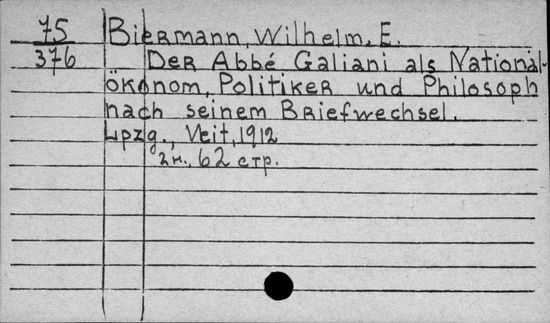 75 Biermann, Wilhelm. E.
376 Der Abbé Galiani als National-
ökonom, Politiker und Philosoph
nach seinem Briefwechsel.
Lpzg., Veit, 1912
2н., 62 стр.